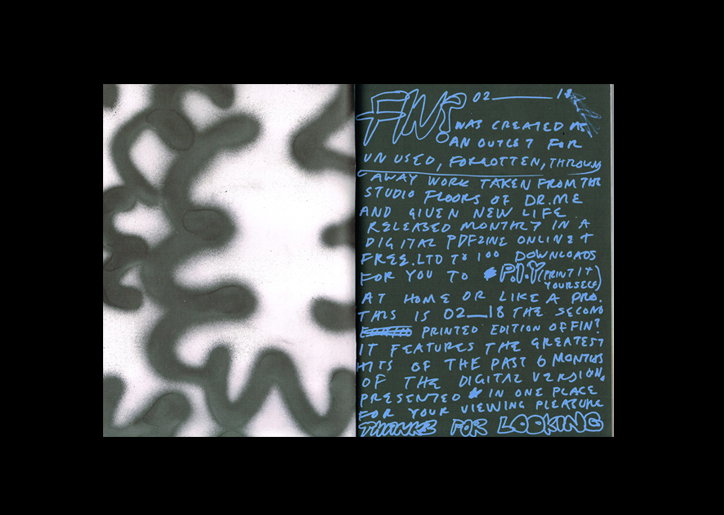 FIN? 02 —— 18
WAS CREATED AS
AN OUTLET FOR
UNUSED, FORGOTTEN, THROWN
AWAY WORK TAKEN FROM THE
STUDIO FLOORS OF DR.ME
AND GIVEN NEW LIFE
RELEASED MONTHLY IN A
DIGITAL PDFZINE ONLINE +
FREE. LTD TO 100 DOWNLOADS
FOR YOU TO P.I.Y (PRINT IT
YOURSELF)
AT HOME OR LIKE A PRO.
THIS IS 02__18 THE SECOND
PRINTED EDITION OF FIN?
IT FEATURES THE GREATEST
HITS OF THE PAST 6 MONTHS
OF THE DIGITAL VERSION,
PRESENTED IN ONE PLACE
FOR YOUR VIEWING PLEASURE
THANKS FOR LOOKING